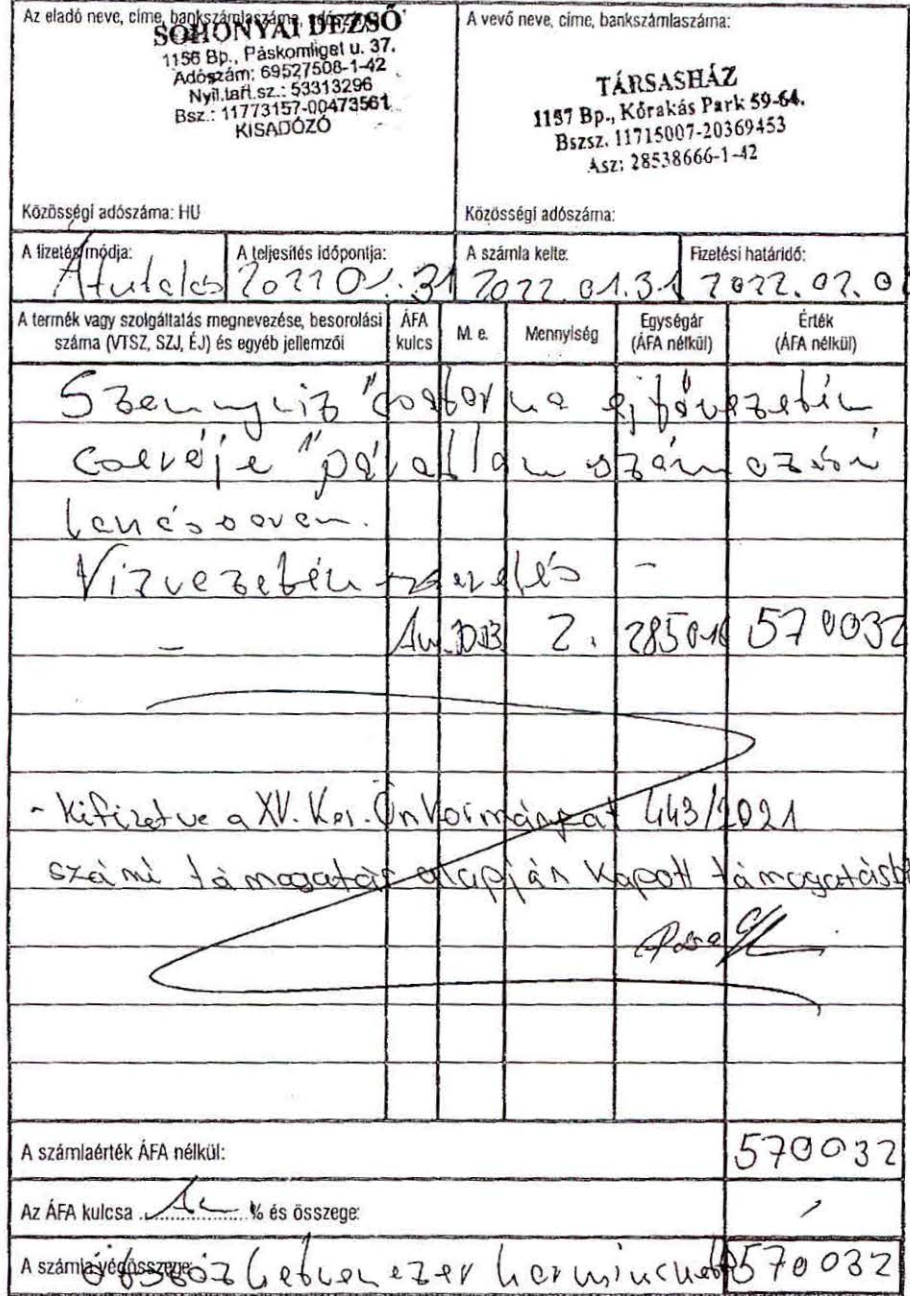 Az eladó neve, címe, bankszámlaszáma, adószáma:
SOHONYAI DEZSŐ
1156 Bp., Páskomliget u. 37.
Adószám: 69527508-1-42
Nyil.tart.sz.: 53313296
Bsz.: 11773157-00473561
KISADÓZÓ
Közösségi adószáma: HU
A vevő neve, címe, bankszámlaszáma:
TÁRSASHÁZ
1157 Bp., Kőrakás Park 59-64.
Bszsz. 11715007-20369453
Asz: 28538666-1-42
Közösségi adószáma:
A fizetés módja: Átutalás
A teljesítés időpontja: 2022 01.31
A számla kelte: 2022.01.31
Fizetési határidő: 2022.02.0
A termék vagy szolgáltatás megnevezése, besorolási száma (VTSZ, SZJ, ÉJ) és egyéb jellemzői
ÁFA kulcs
M. e.
Mennyiség
Egységár (ÁFA nélkül)
Érték (ÁFA nélkül)
Szennyvíz "csatorna ejtővezeték
cseréje" pá
Vízvezeték szerelés -
- DB 2. 285016 570032
- Kifizetve a XV. Ker. Önkormányzat 443/2021
számú támogatás alapján kapott támogatásb
A számlaérték ÁFA nélkül: 570032
Az ÁFA kulcsa % és összege:
A számla végösszege: ötszázhetvenezer harminckettő 570032